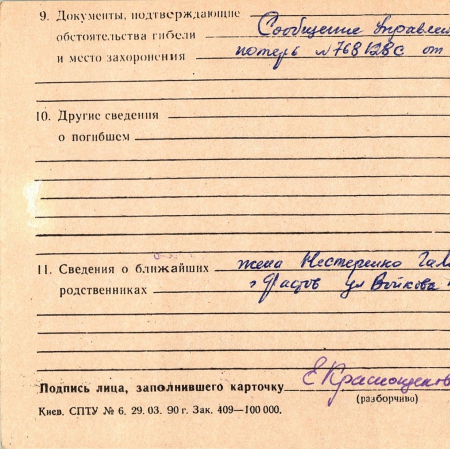 9. Документы, подтверждающие Сообщение Управлен
обстоятельства гибели потерь №768128с от
и место захоронения
10. Другие сведения
о погибшем
11. Сведения о ближайших жена Нестеренко Гал
родственниках г Фастов ул Войкова
Подпись лица, заполнившего карточку ЕКраснощеков
(разборчиво)
Киев. СПТУ № 6. 29. 03. 90 г. Зак. 409—100 000.